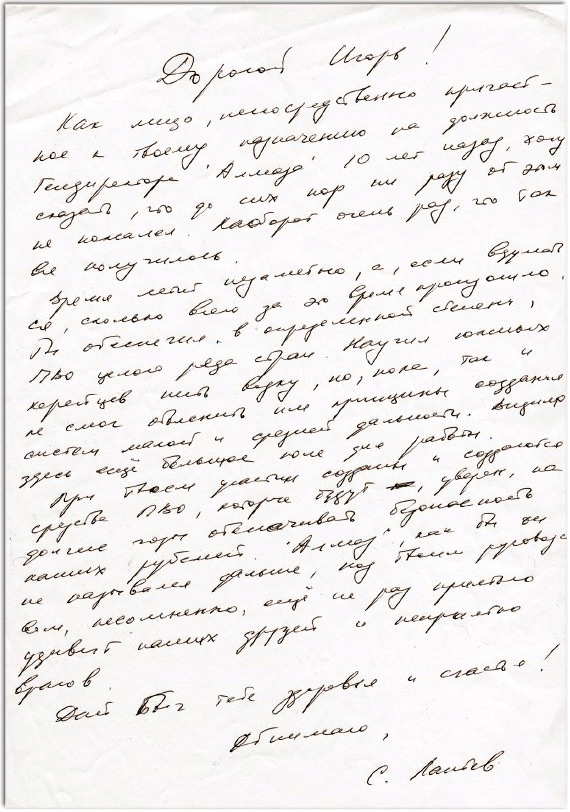 Дорогой Игорь!
Как лицо, непосредственно причаст-
ное к твоему назначению на должность
Гендиректора "Алмаза" 10 лет назад, хочу
сказать, что до сих пор ни разу от этом
не пожалел. Наоборот очень рад, что так
все получилось.
Время летит незаметно, а, если вдумать
ся, сколько всего за это время произошло.
Ты обеспечил в определенной степени,
ПВО целого ряда стран. Научил южных
корейцев пить водку, но, пока, так и
не смог объяснить им принципы создания
систем малой и средней дальности. Видимо
здесь ещё большое поле для работы.
При твоем участии созданы и создаются
средства ПВО, которые будут, уверен, на
долгие годы обеспечивать безопасность
наших рубежей. "Алмаз", как бы он
не назывался дальше, под твоим руководс
вом, несомненно, ещё не раз приятно
удивит наших друзей и неприятно
врагов.
Дай Бог тебе здоровья и счастья!
Обнимаю,
С. Лаптев